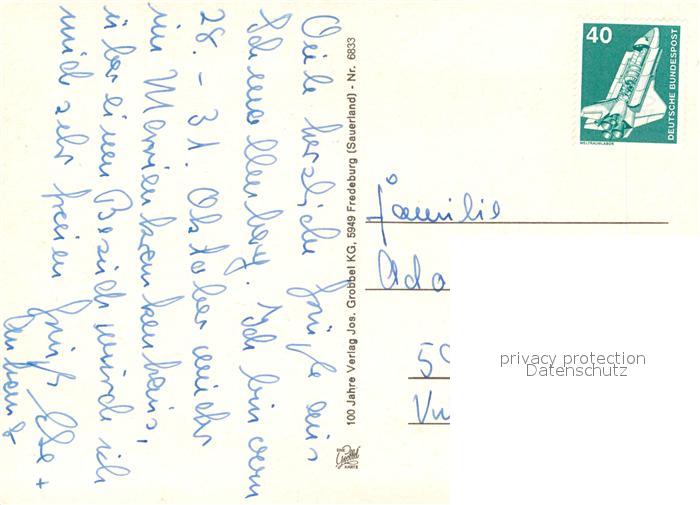 Viele herzliche Grüße aus
Schmallenberg. Ich bin vom
28. - 31. Oktober wieder
im Marienkrankenhaus,
über einen Besuch würde ich
mich sehr freuen
Gruß Else +
100 Jahre Verlag Jos. Grobbel KG, 5949 Fredeburg (Sauerland) - Nr. 6833
EINE
Grobbel
KARTE
40
DEUTSCHE BUNDESPOST
WELTRAUMLABOR
Familie
privacy protection
Datenschutz